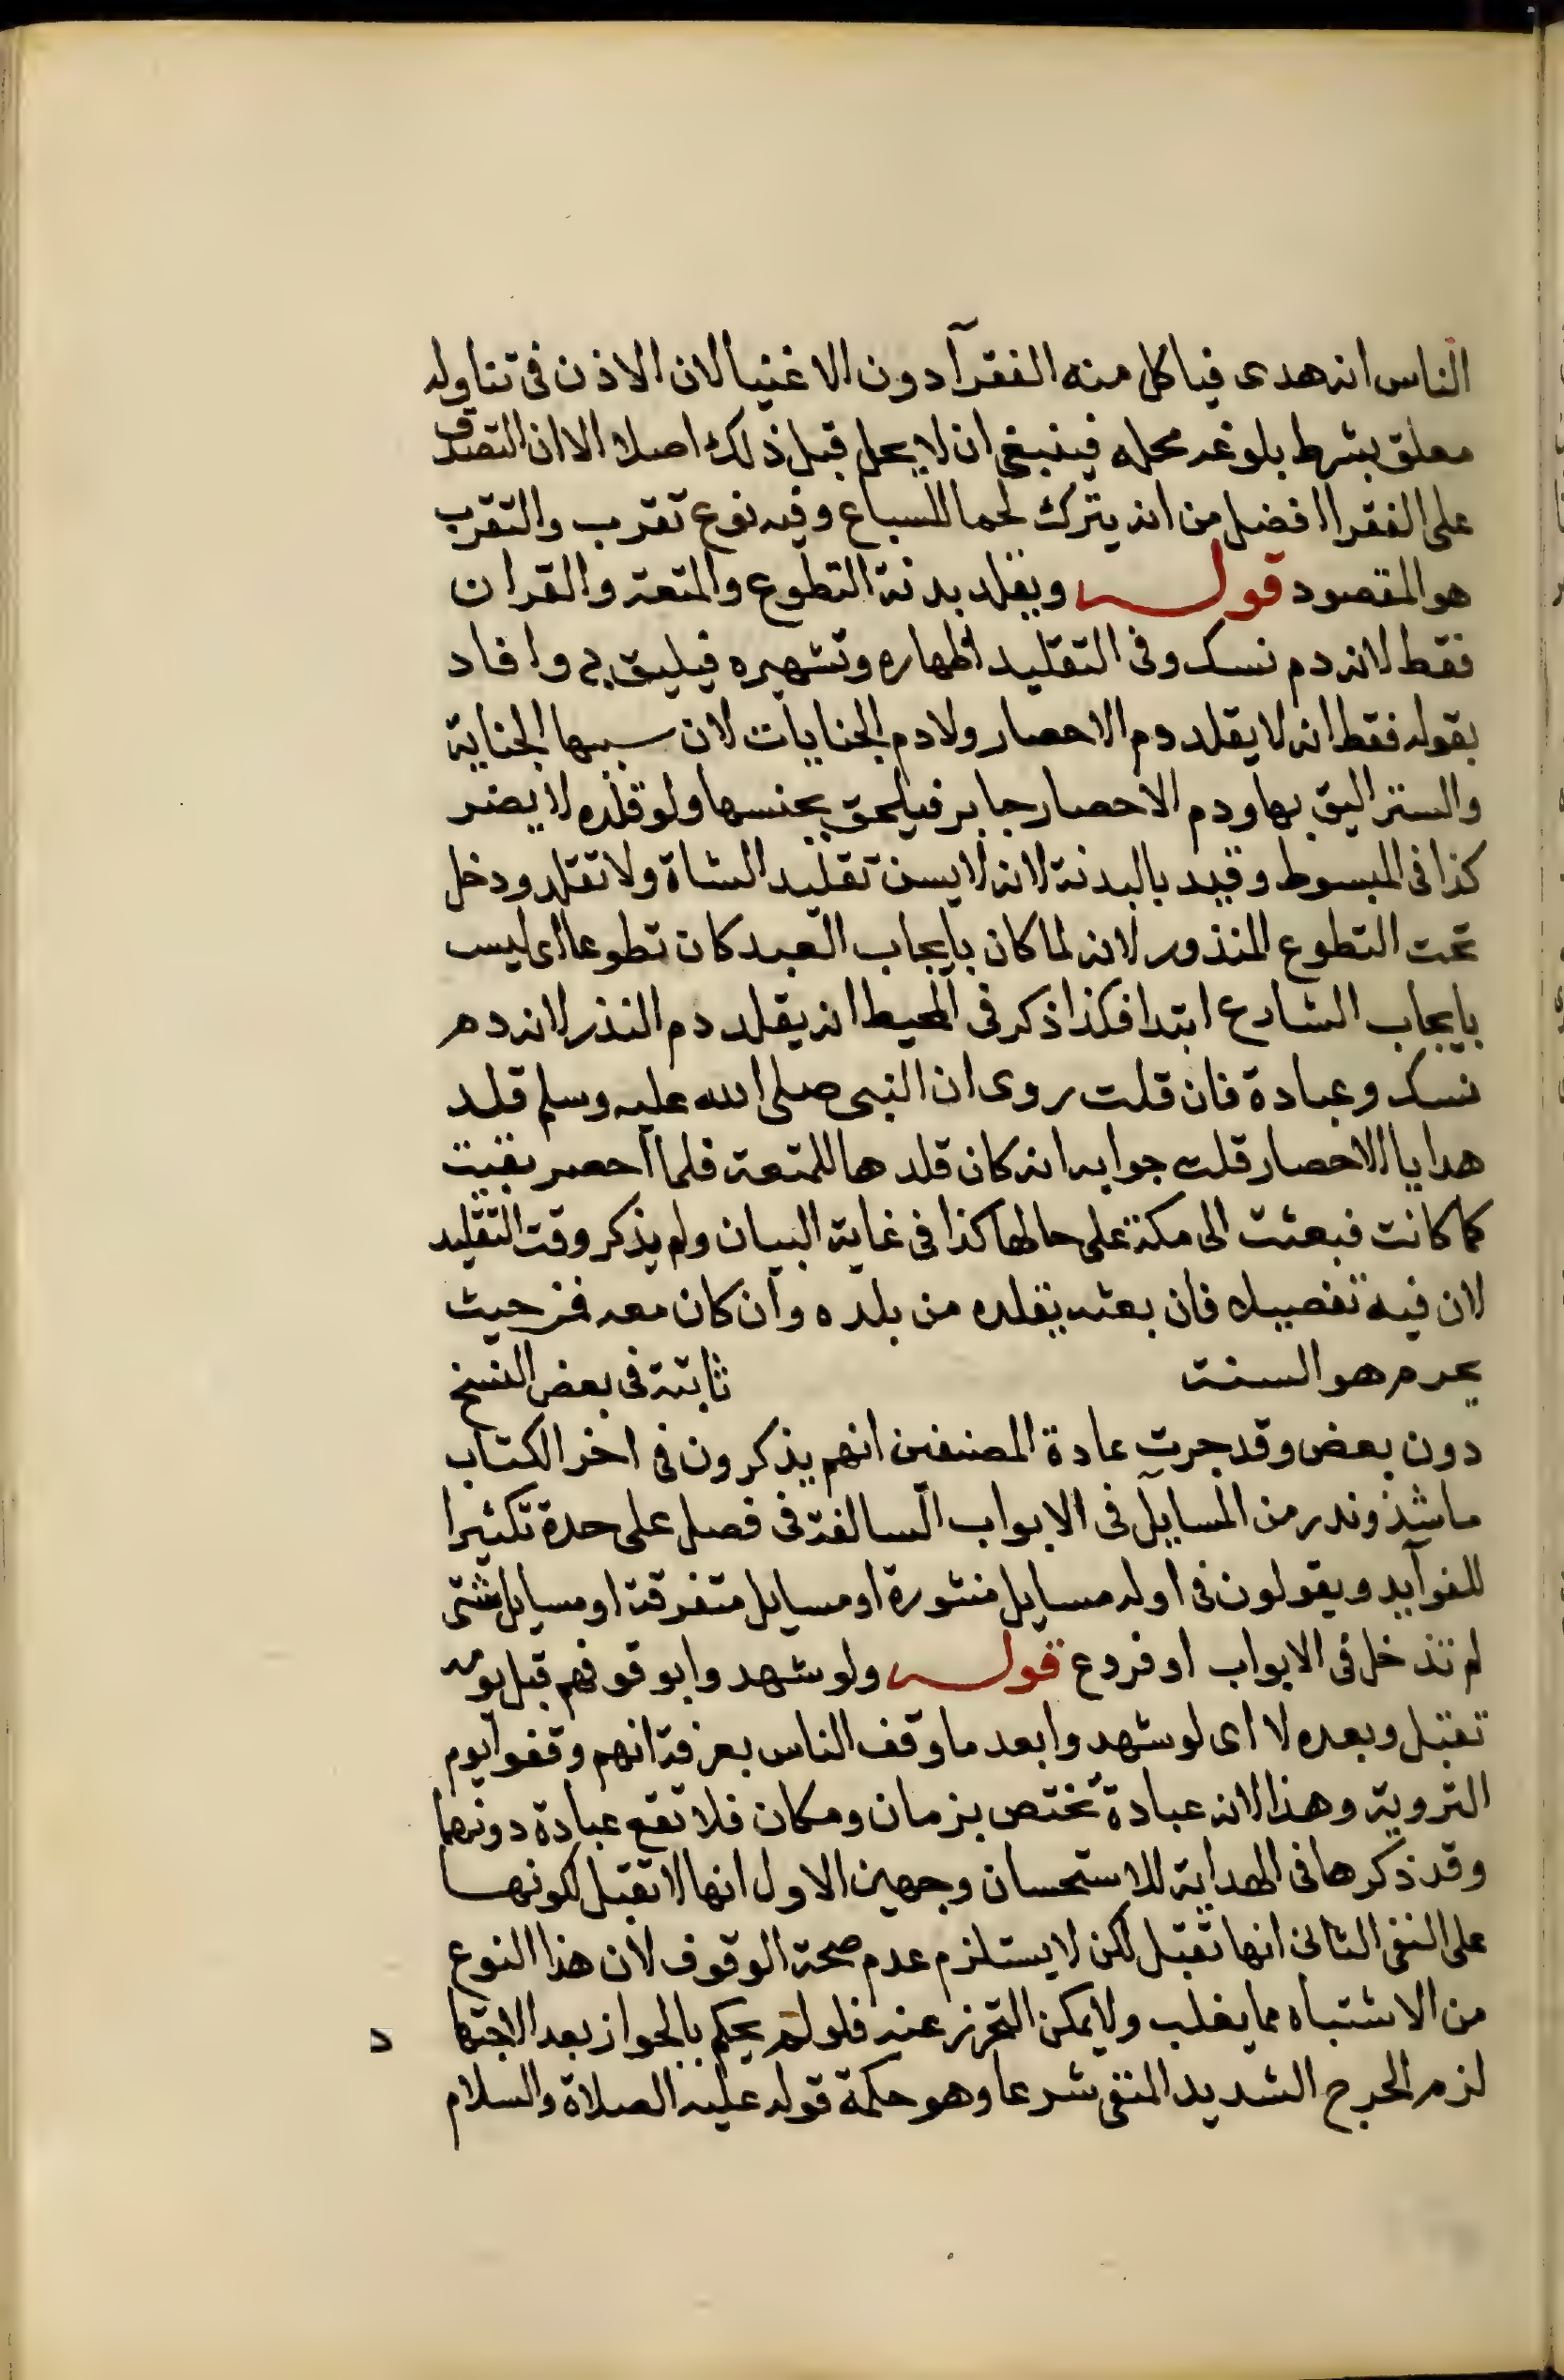 الناس انه هدى فياكل منه الفقرآ دون الاغنيا لان الاذن فى تناوله
معلق بشرط بلوغه محله فينبغى ان لا يحل قبل ذلك اصلا الا ان التصدق
على الفقرا افضل من انه يترك لحما للسباع وفيه نوع تقرب والتقرب
هو المقصود قوله ويقلد بدنة التطوع والمتعة والقران
فقط لانه دم نسك وفى التقليد اظهاره وتشهيره فيليق به وافاد
بقوله فقط انه لا يقلد دم الاحصار ولا دم الجنايات لان سببها الجناية
والستر اليق بها ودم الاحصار جابر فيلحق بجنسها ولو قلده لا يضر
كذا فى المبسوط وقيد بالبدنة لانه لا يسن تقليد الشاة ولا تقلد ودخل
تحت التطوع المنذور لانه لما كان بايجاب العبد كان تطوعا اى ليس
بايجاب الشارع ابتدا فكذا ذكر فى المحيط انه يقلد دم النذر لانه دم
نسك وعبادة فان قلت روى ان النبى صلى الله عليه وسلم قلد
هدايا الاحصار قلت جوابه انه كان قلدها للمتعة فلما احصر بقيت
كما كانت فبعثت الى مكة على حالها كذا فى غاية البيان ولم يذكر وقت التقليد
لان فيه تفصيلا فان بعثه يقلده من بلده وان كان معه فمن حيث
يحرم هو السنة ثابتة فى بعض النسخ
دون بعض وقد جرت عادة المصنفين انهم يذكرون فى اخر الكتاب
ما شذ وندر من المسايل فى الابواب السالفة فى فصل على حدة تكثيرا
للفوآيد ويقولون فى اوله مسايل منثورة او مسايل متفرقة او مسايل شتى
لم تدخل فى الابواب او فروع قوله ولو شهدوا بوقوفهم قبل يومه
تقبل وبعده لا اى لو شهدوا بعد ما وقف الناس بعرفة انهم وقفوا يوم
التروية وهذا لانه عبادة تختص بزمان ومكان فلا تقع عبادة دونهما
وقد ذكرها فى الهداية للاستحسان وجهين الاول انها لا تقبل لكونها
على النفى الثانى انها تقبل لكن لا يستلزم عدم صحة الوقوف لان هذا النوع
من الاشتباه مما يغلب ولا يمكن التحرز عنه فلو لم يحكم بالجواز بعد الاجتهاد
لزم الحرج الشديد المنفى شرعا وهو حكمة قوله عليه الصلاة والسلام